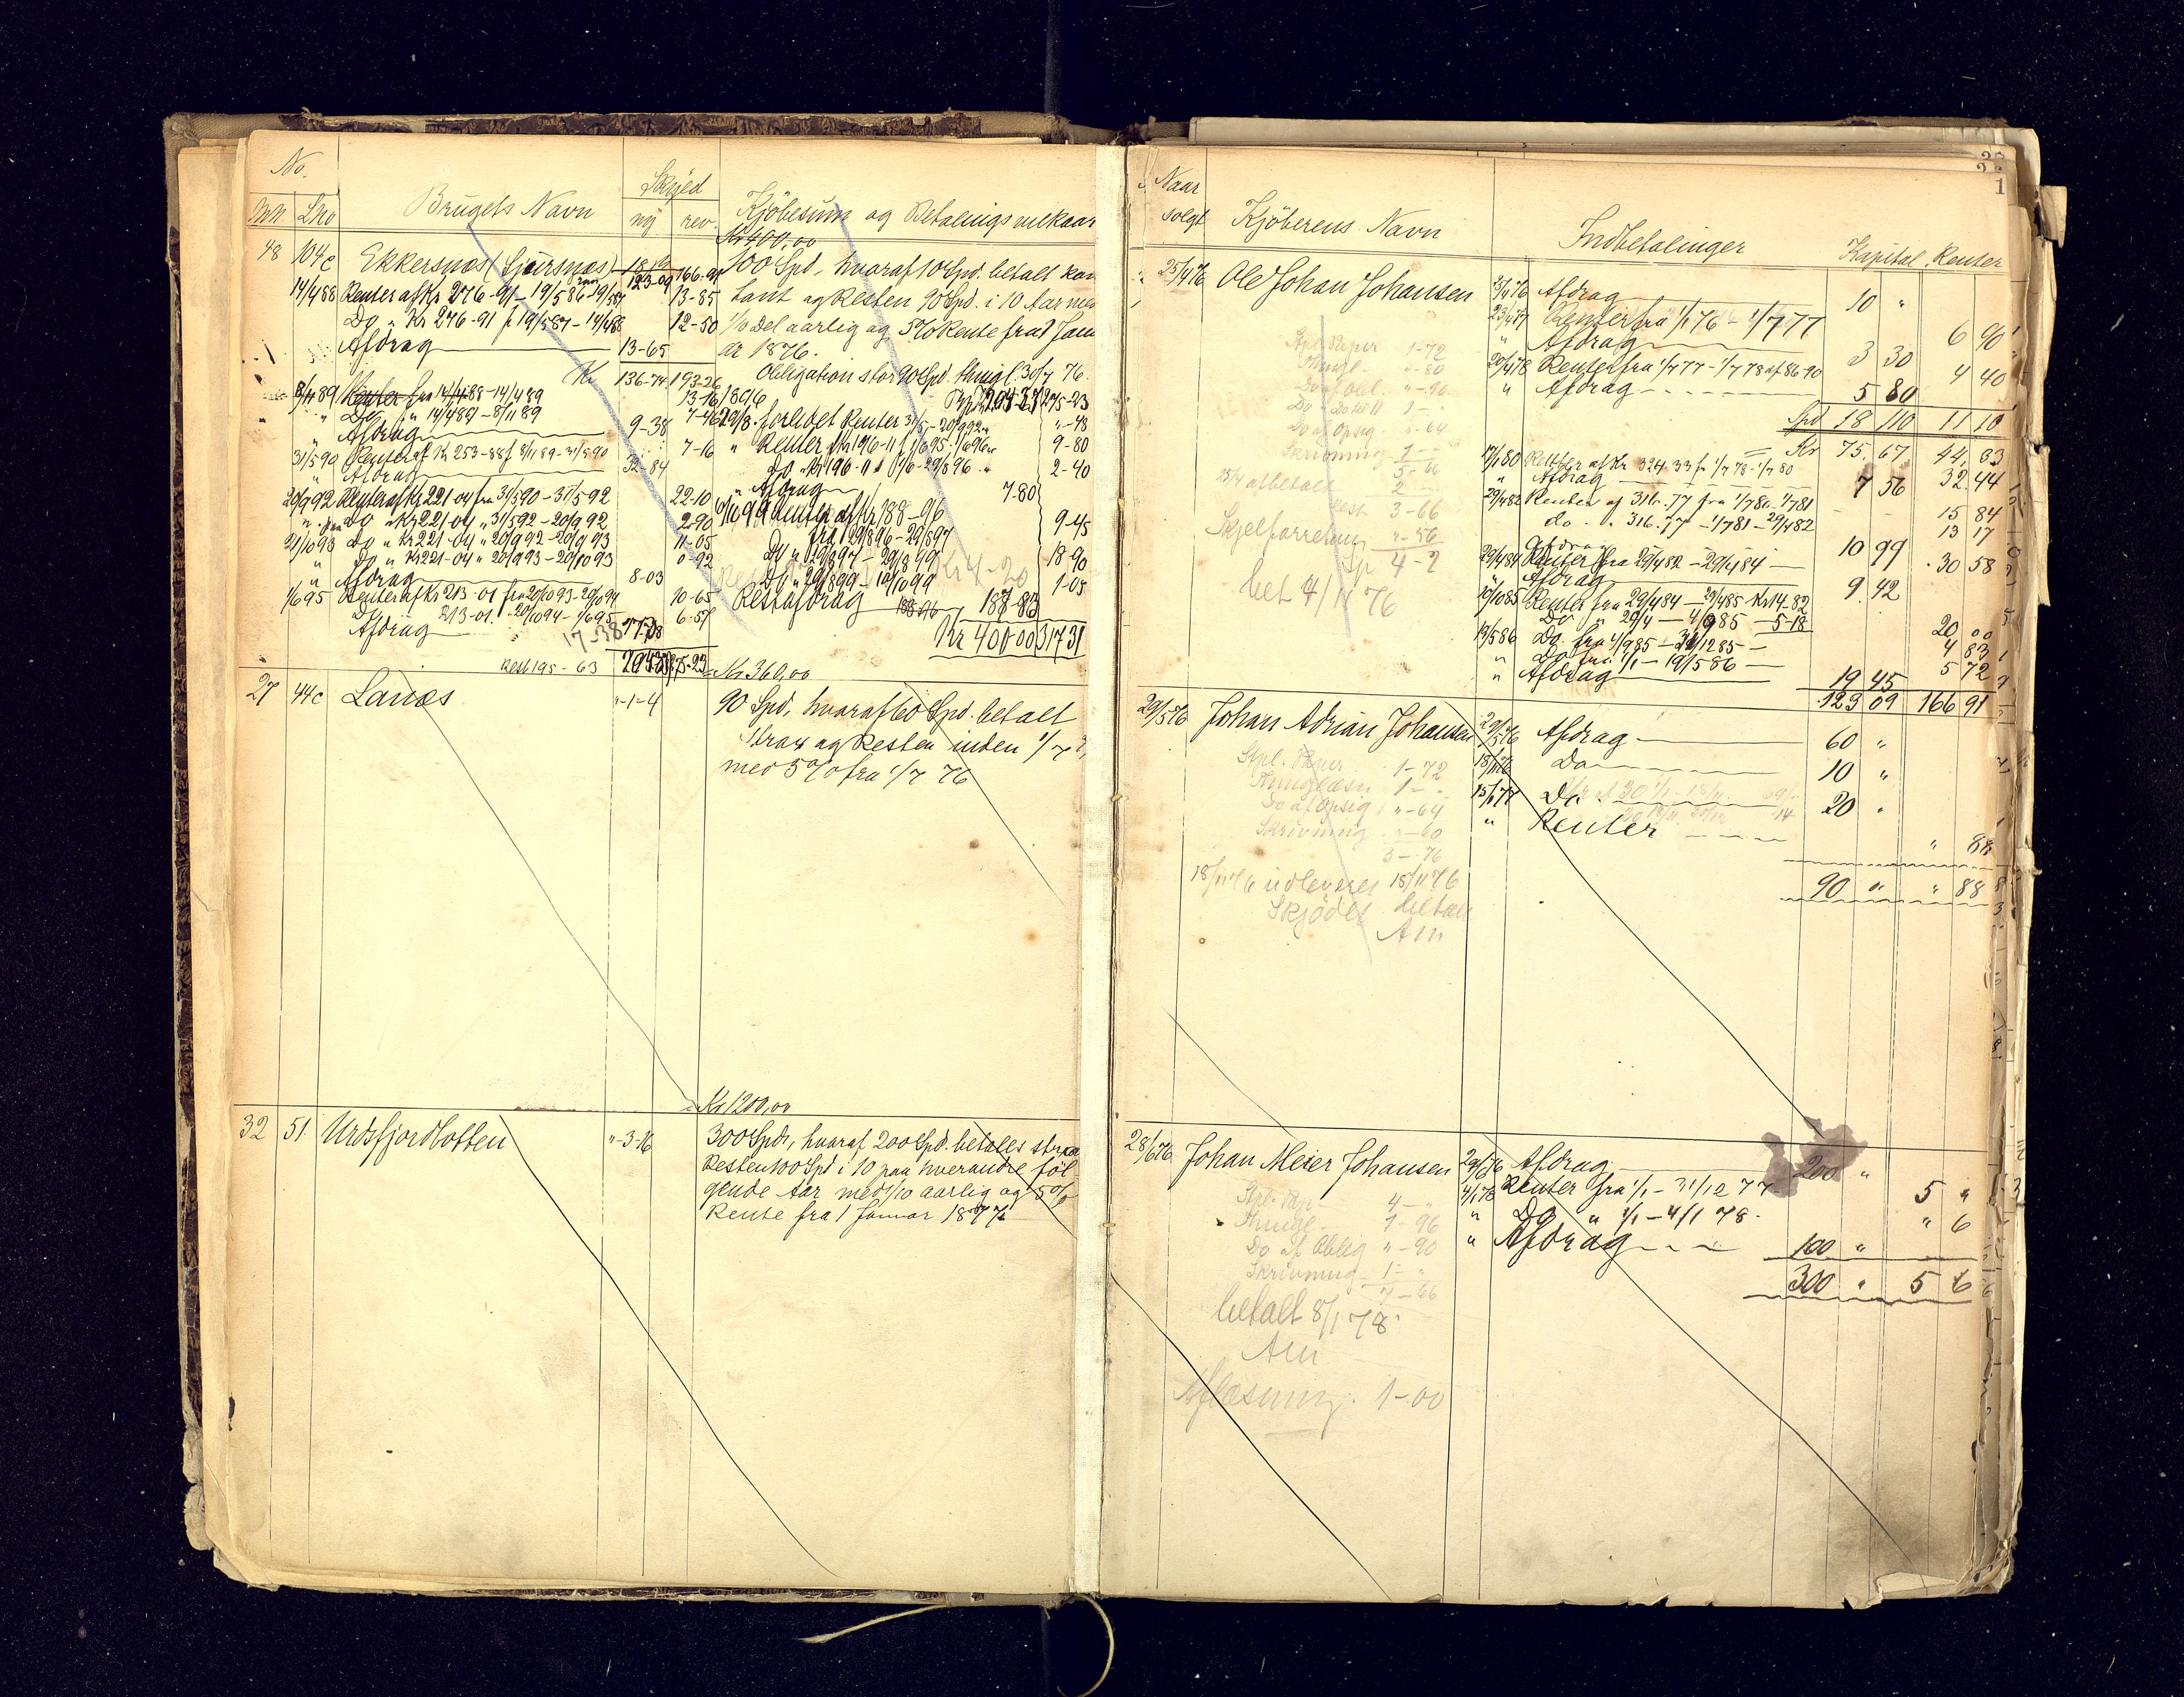 No.
MN. LNo Brugets Navn Skyld ny rev. Kjöbesum og Betalingsvilkaar
Kr 400,00
48 104c Ekkersnæs 18 123-09 166-91 100 Spd, hvoraf 10 Spd. betalt kon
14/4 88 Renter af Kr 276-91 19/5 86-19/5 87 13-85 tant og Resten 90 Spd. i 10 Aar med
Do " Kr 276-91 f 19/5 87-14/4 88 12-50 1/10 Del aarlig og 5% Rente fra 1 Janu
Afdrag 13-65 ar 1876.
Kr 136-74 193-26 Obligation stor 90 Spd. thingl. 30/7 76.
8/11 89 Renter fra 14/4 88-14/4 89 13-16 1896 275-23
" Do fra 14/4 89-8/11 89 7-46 29/8 forlodet Renter 31/5-20/9 92 "-48
" Afdrag 9-38 " Renter Kr 196-11 f 1/6 95-1/6 96 9-80
31/5 90 Renter af Kr 253-88 f 8/11 89-31/5 90 7-16 Do Kr 196-11 1/6-29/8 96 " 2-40
" Afdrag 32-84 " Afdrag 7-80
20/9 92 Renter af Kr 221-04 fra 31/5 90-31/5 92 22-10 10/10 99 Renter af Kr 188-96
" Do Kr 221-04 " 31/5 92-20/9 92 2-90 fra 29/8 96-29/8 97 9-45
21/10 93 Do " Kr 221-04 " 20/9 92-20/9 93 11-05 Do " 29/8 97-29/8 99 18-90
" Do " Kr 221-04 " 20/9 93-20/10 93 0-92 Do " 29/8 99-10/10 99 1-05
" Afdrag 8-03 Kr 4-20
1/6 95 Renter af Kr 213-01 fra 20/10 93-20/10 94 10-65 Restafdrag 188-96 187-83
Do 213-01 20/10 94-1/6 95 6-51 Kr 400 00 317 31
Afdrag 17-38
Rest 195-63
Kr 360,00
27 44c Lanæs "-1-4 90 Spd, hvoraf 60 Spd. betalt
strax og Resten inden 1/7
med 5% fra 1/7 76
Kr 1200,00
32 51 Urdsfjordbotten "-3-16 300 Spd, hvoraf 200 Spd. betales strax
Resten 100 Spd i 10 paa hverandre föl
gende Aar med 1/10 aarlig og 5%
Rente fra 1 Januar 1877
Naar solgt Kjöberens Navn Indbetalinger Kapital. Renter
25/4 76 Ole Johan Johansen Afdrag 10 "
23/4 77 Renter fra 1/1 76-1/7 77 6 90
Stpl. Papir 1-72 " Afdrag 3 30
Thingl. "-80 20/4 78 Renter fra 1/7 77-1/7 78 af 86-90 4 40
Do af Obl. "-96 " Afdrag 5 80
Do 1-" Spd 18 110 11 10
Do af Opsig "-64 Kr 75,67 44,63
Skrivning 1-" 17/1 80 Renter af Kr 324.33 fr 1/7 78-1/7 80 32.44
" Afdrag 7 56
25/4 afbetalt 2 29/4 82 Renter af 316.77 fra 1/7 80-1/7 81 15 84
Rest 3-66 do. " 316.77 - 1/7 81-29/4 82 13 17
Skjelforretning "-56 Afdrag 10 99
29/4 84 Renter fra 29/4 82-29/4 84 30 58
" Afdrag 9.42
bet 4/11 76 10/10 85 Renter fra 29/4 84-29/4 85 Kr 14-82
Do " 29/4-4/9 85 5-18 20 00
19/5 86 Do fra 4/9 85-31/12 85 4 83
" Do fra 1/1-19/5 86 5 72
" Afdrag 19 45
123 09 166 91
29/5 76 Johan Adrian Johansen 29/5 76 Afdrag 60 "
Stpl. Papir 1-72 18/11 76 Do 10 "
Thinglæsn 1-" 15/1 77 Do 20 "
Do af Opsig "-64 " Renter " 88
Skrivning "-60
3-76
90 " " 88
18/11 76 udleveres 18/11 76
Skjödet betalt
Am
28/6 76 Johan Meier Johansen 29/6 76 Afdrag 200 "
Stpl. Pap. 4-" 4/1 78 Renter fra 1/1-31/12 77 5 "
Thingl. 1-96 " Do " 1/1-4/1 78. " 6
Do af Oblig "-90 " Afdrag 100 "
Skrivning 1-"
7-66 300 " 5 6
betalt 8/1 78
Am
Aflæsning. 1-00